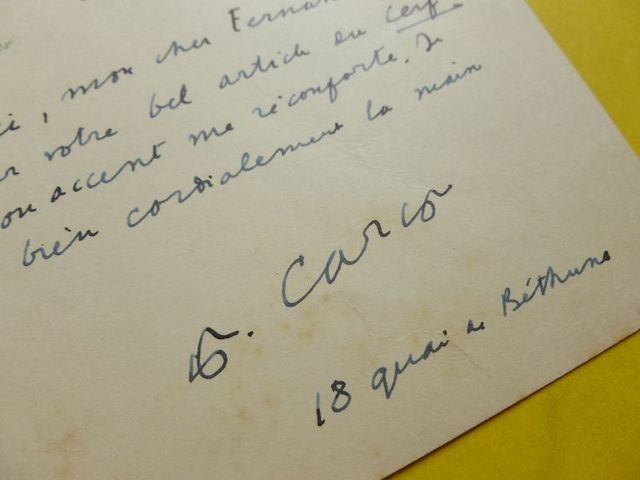 ci, mon cher Fernan
r votre bel article du cerf
on accent me réconforte. Je
bien cordialement la main
F. Carco
18 quai de Béthune